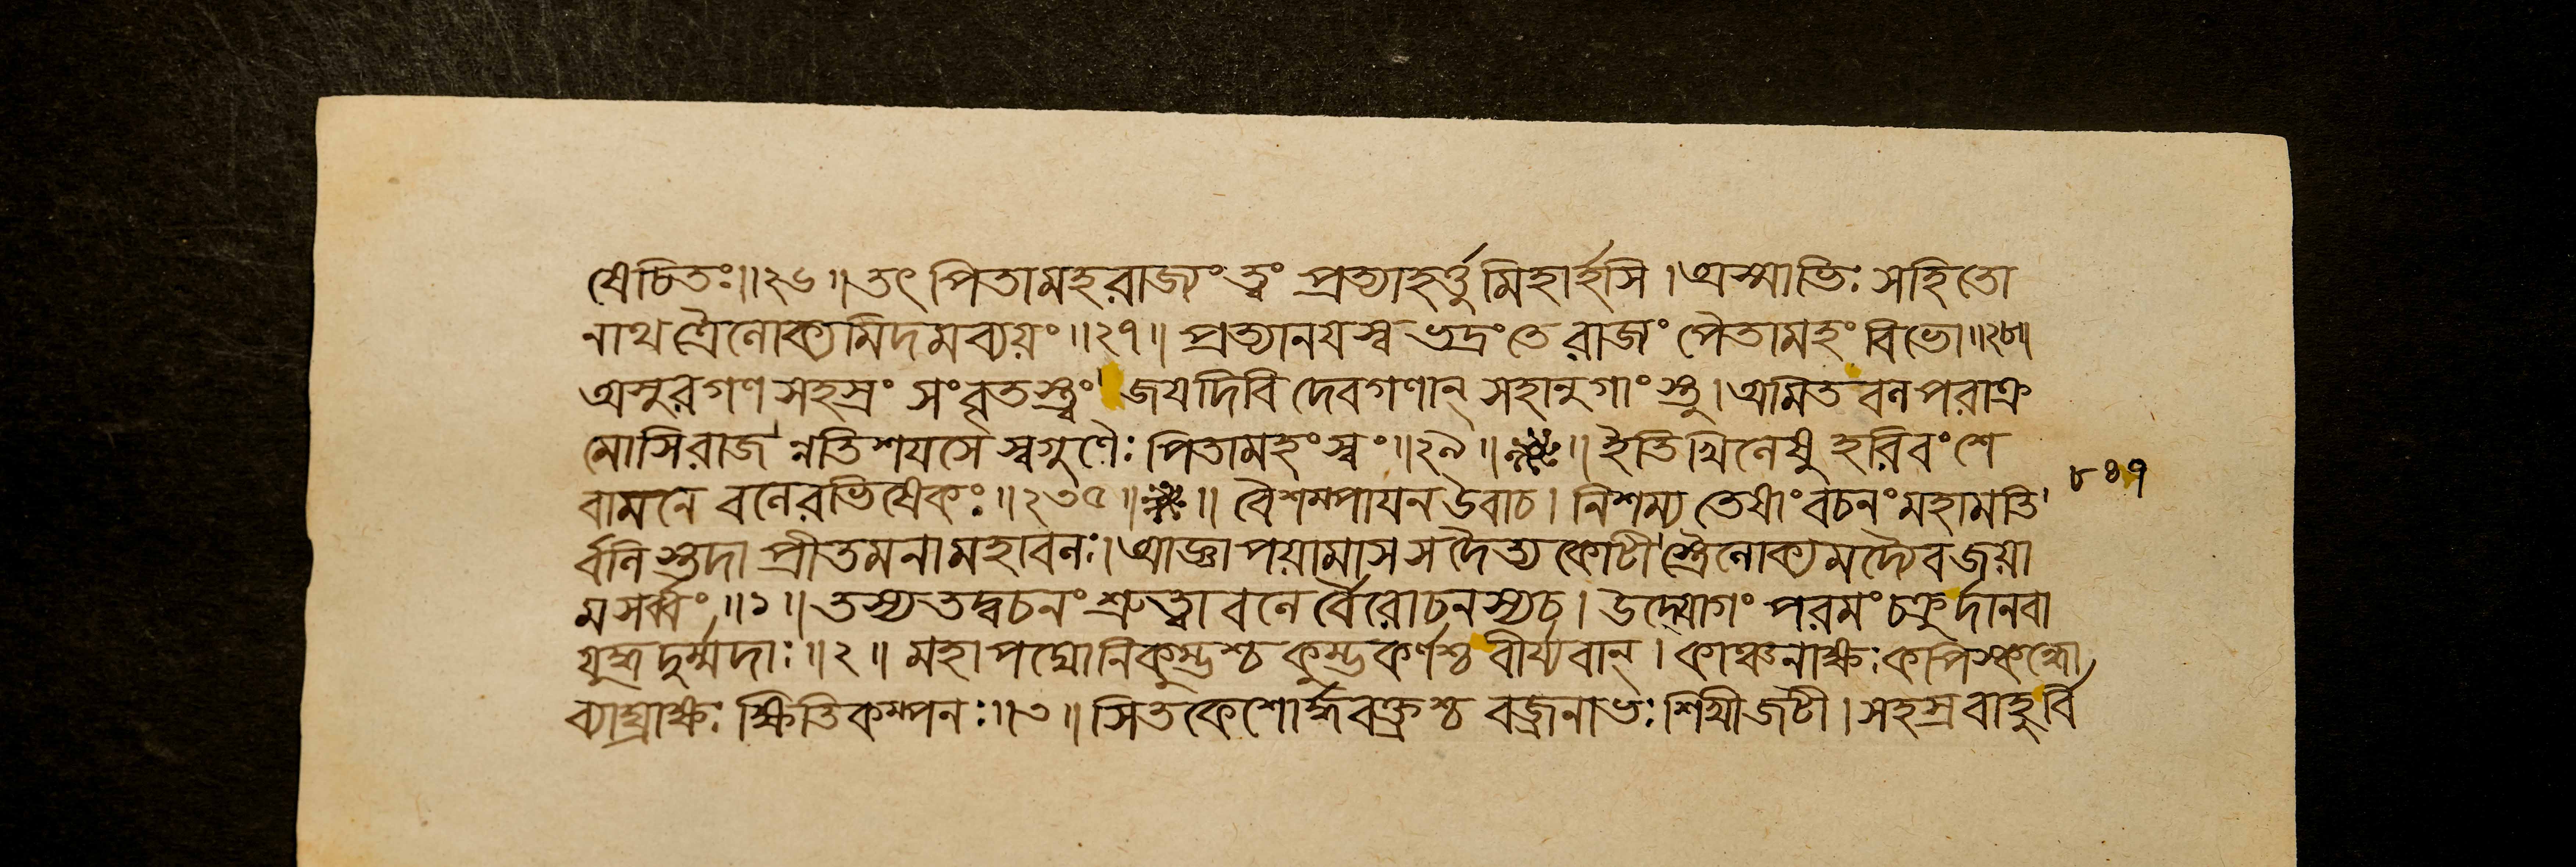 ষেচিতঃ॥২৬॥তৎ পিতামহরাজ্যং ত্বং প্রত্যাহর্ত্তুমিহার্হসি।অস্মাভিঃ সহিতো
নাথ ত্রৈলোক্যমিদমব্যয়ং॥২৭॥প্রত্যানয়স্ব ভদ্রং তে রাজং পৈতামহং বিভো॥২৮॥
অসুরগণ সহস্রং সংবৃতস্ত্বং জয়দিবি দেবগণান্ সহানুগাংস্তু।অমিত বলপরাক্র
মোসিরাজন্নতিশয়সে স্বগুণৈঃ পিতামহং স্বং॥২৯॥ ॥ইতিখিলেষু হরিবংশে
বামনে বলেরভিষেকঃ॥২৩৫॥ ॥বৈশম্পায়ন উবাচ।নিশম্য তেষাং বচনং মহামতি
র্বলিস্তদা প্রীতমনা মহাবলঃ।আজ্ঞাপয়ামাস স দৈত্যকোটীস্ত্রৈলোক্যমদ্যৈব জয়া
ম সর্ব্বং॥১॥তস্য তদ্বচনং শ্রুত্বা বলের্বৈরোচনস্যচ।উদ্যোগং পরমং চক্রুর্দানবা
যুদ্ধদুর্ম্মদাঃ॥২॥মহাপদ্মোনিকুম্ভশ্চ কুম্ভকর্ণশ্চ বীর্য্যবান্।কাঞ্চনাক্ষঃ কপিস্কন্ধো
ব্যাঘ্রাক্ষঃ ক্ষিতিকম্পনঃ॥৩॥সিতকেশোর্দ্ধবক্ত্রশ্চ বজ্রনাভঃ শিখীজটী।সহস্রবাহুর্বি
৮৪৭